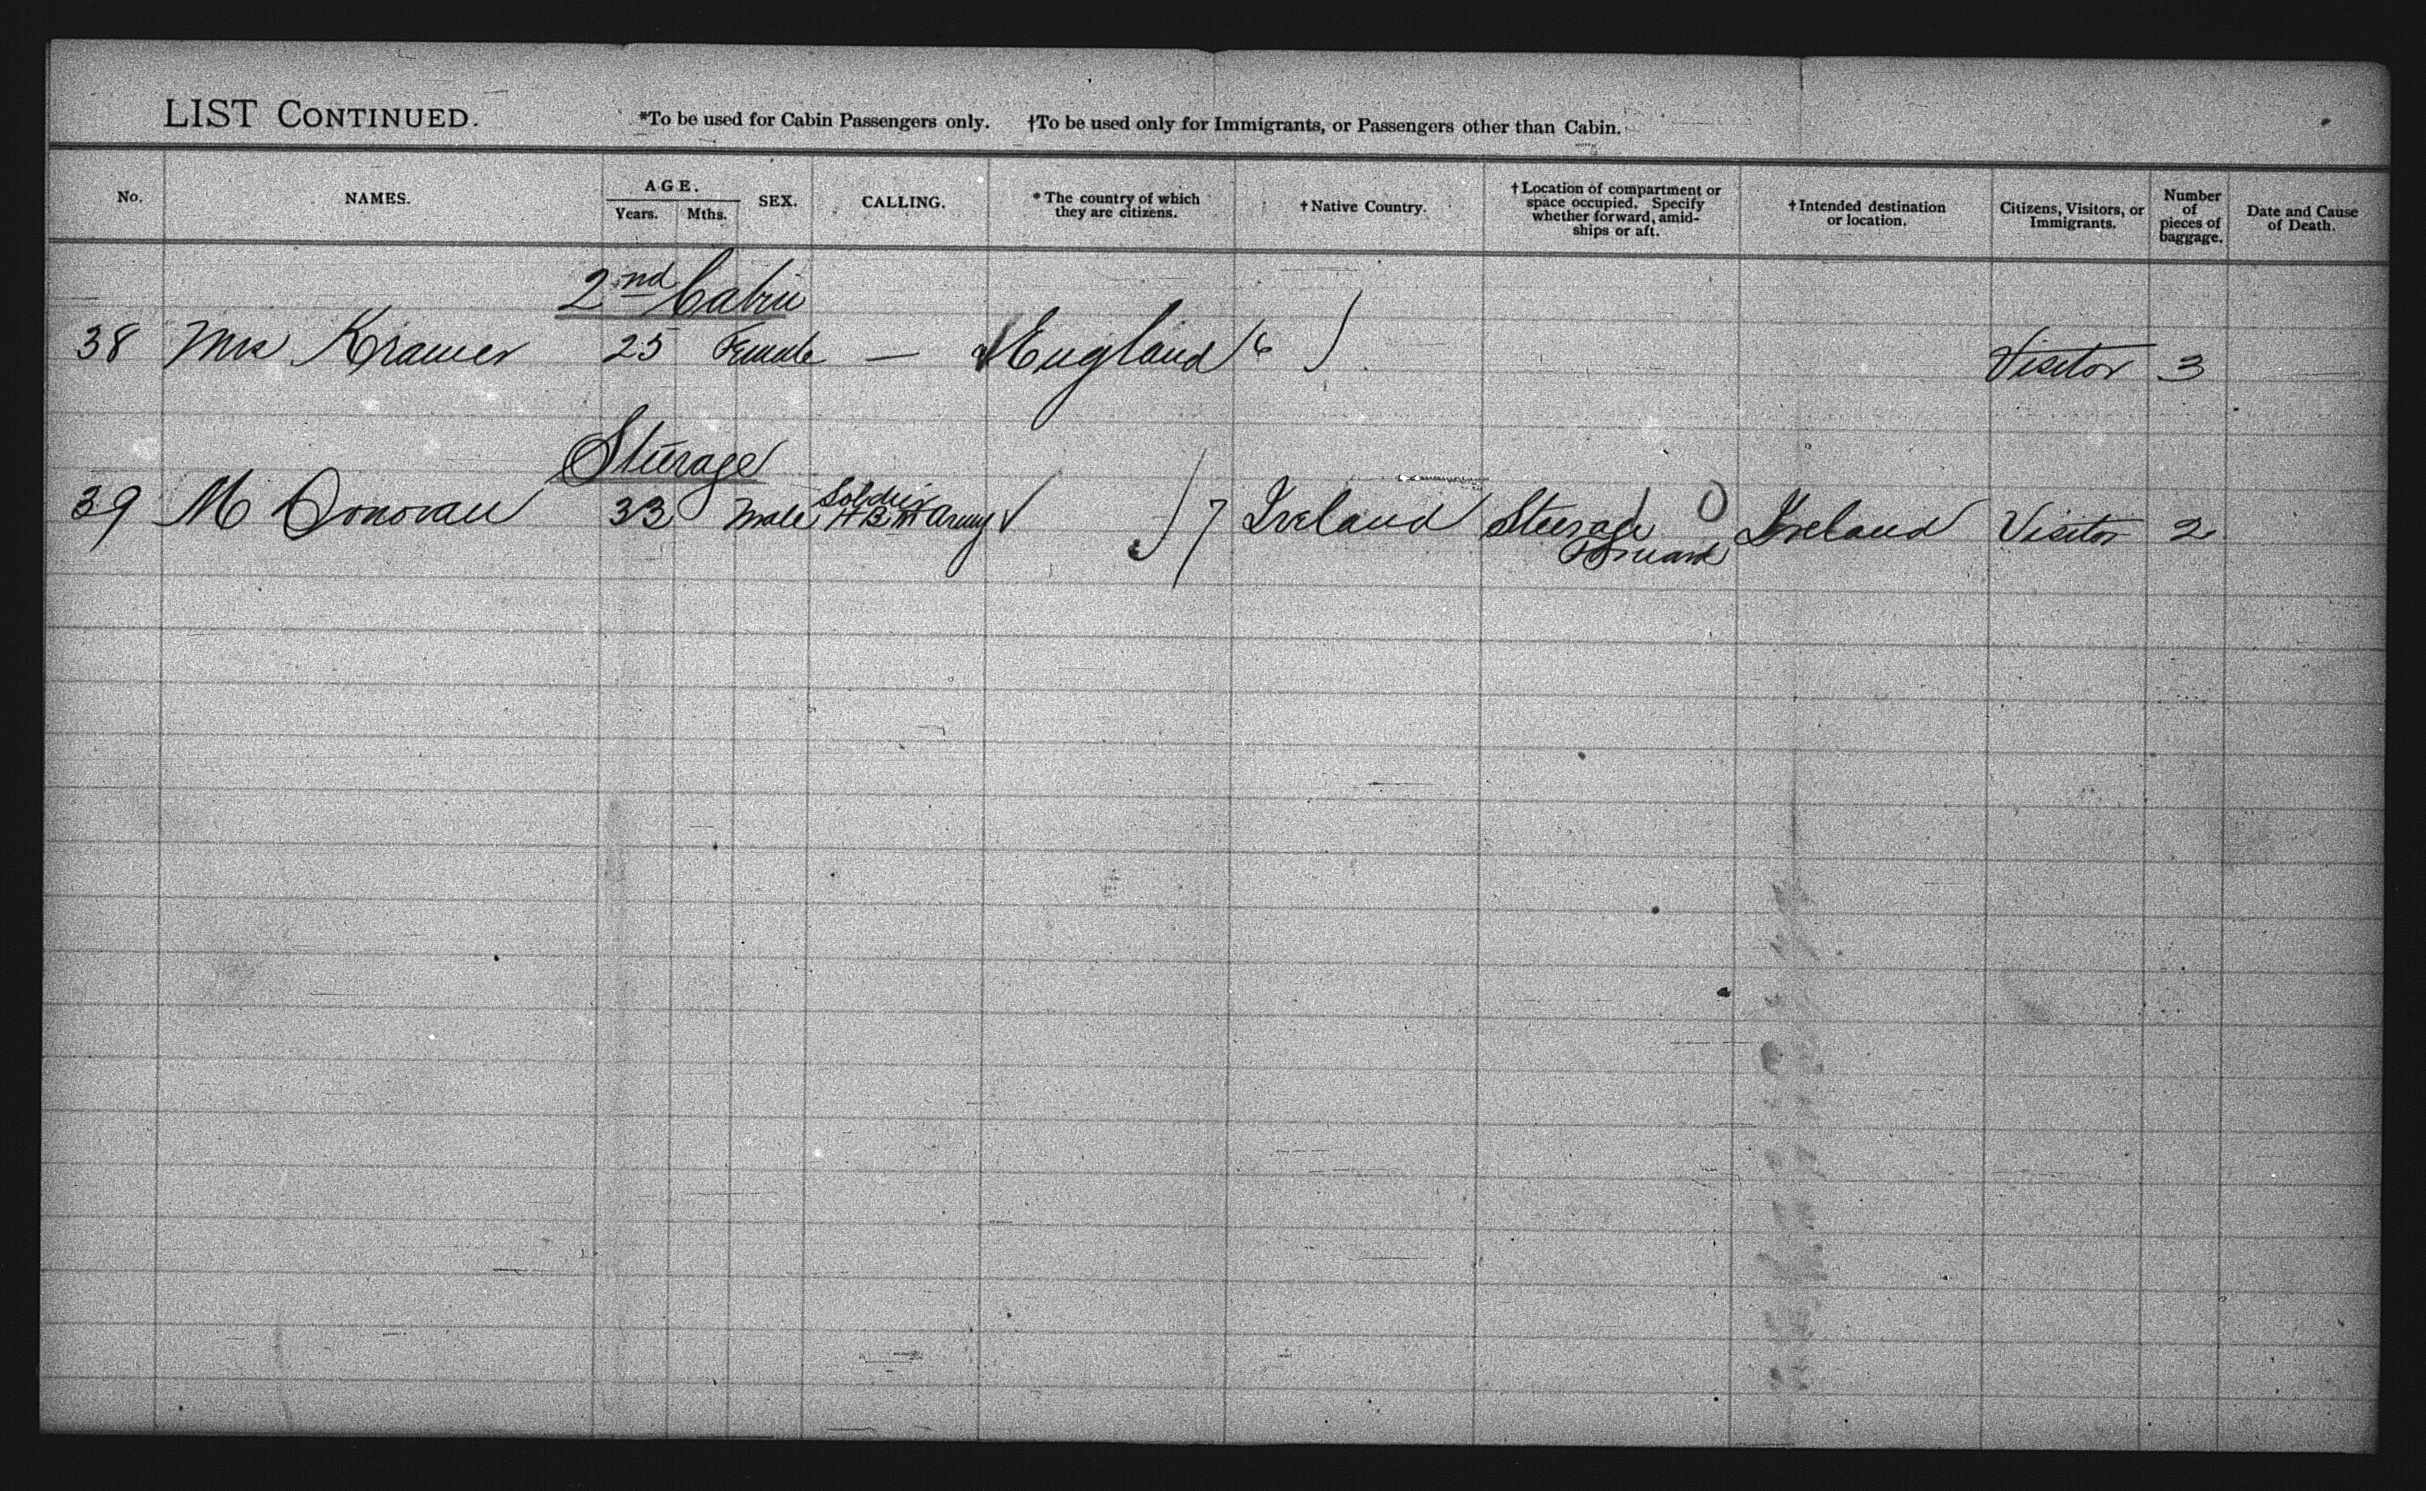 LIST CONTINUED.
*To be used for Cabin Passengers only. †To be used only for Immigrants, or Passengers other than Cabin.
No. NAMES. AGE. Years. Mths. SEX. CALLING. * The country of which they are citizens. † Native Country. † Location of compartment or space occupied. Specify whether forward, amid-ships or aft. † Intended destination or location. Citizens, Visitors, or Immigrants. Number of pieces of baggage. Date and Cause of Death.
2nd Cabin
38 Mrs Kramer 25 Female — England 16 Visitor 3
Steerage
39 M Donovan 33 Male Soldier H B M Army 17 Ireland Steerage Forward 0 Ireland Visitor 2